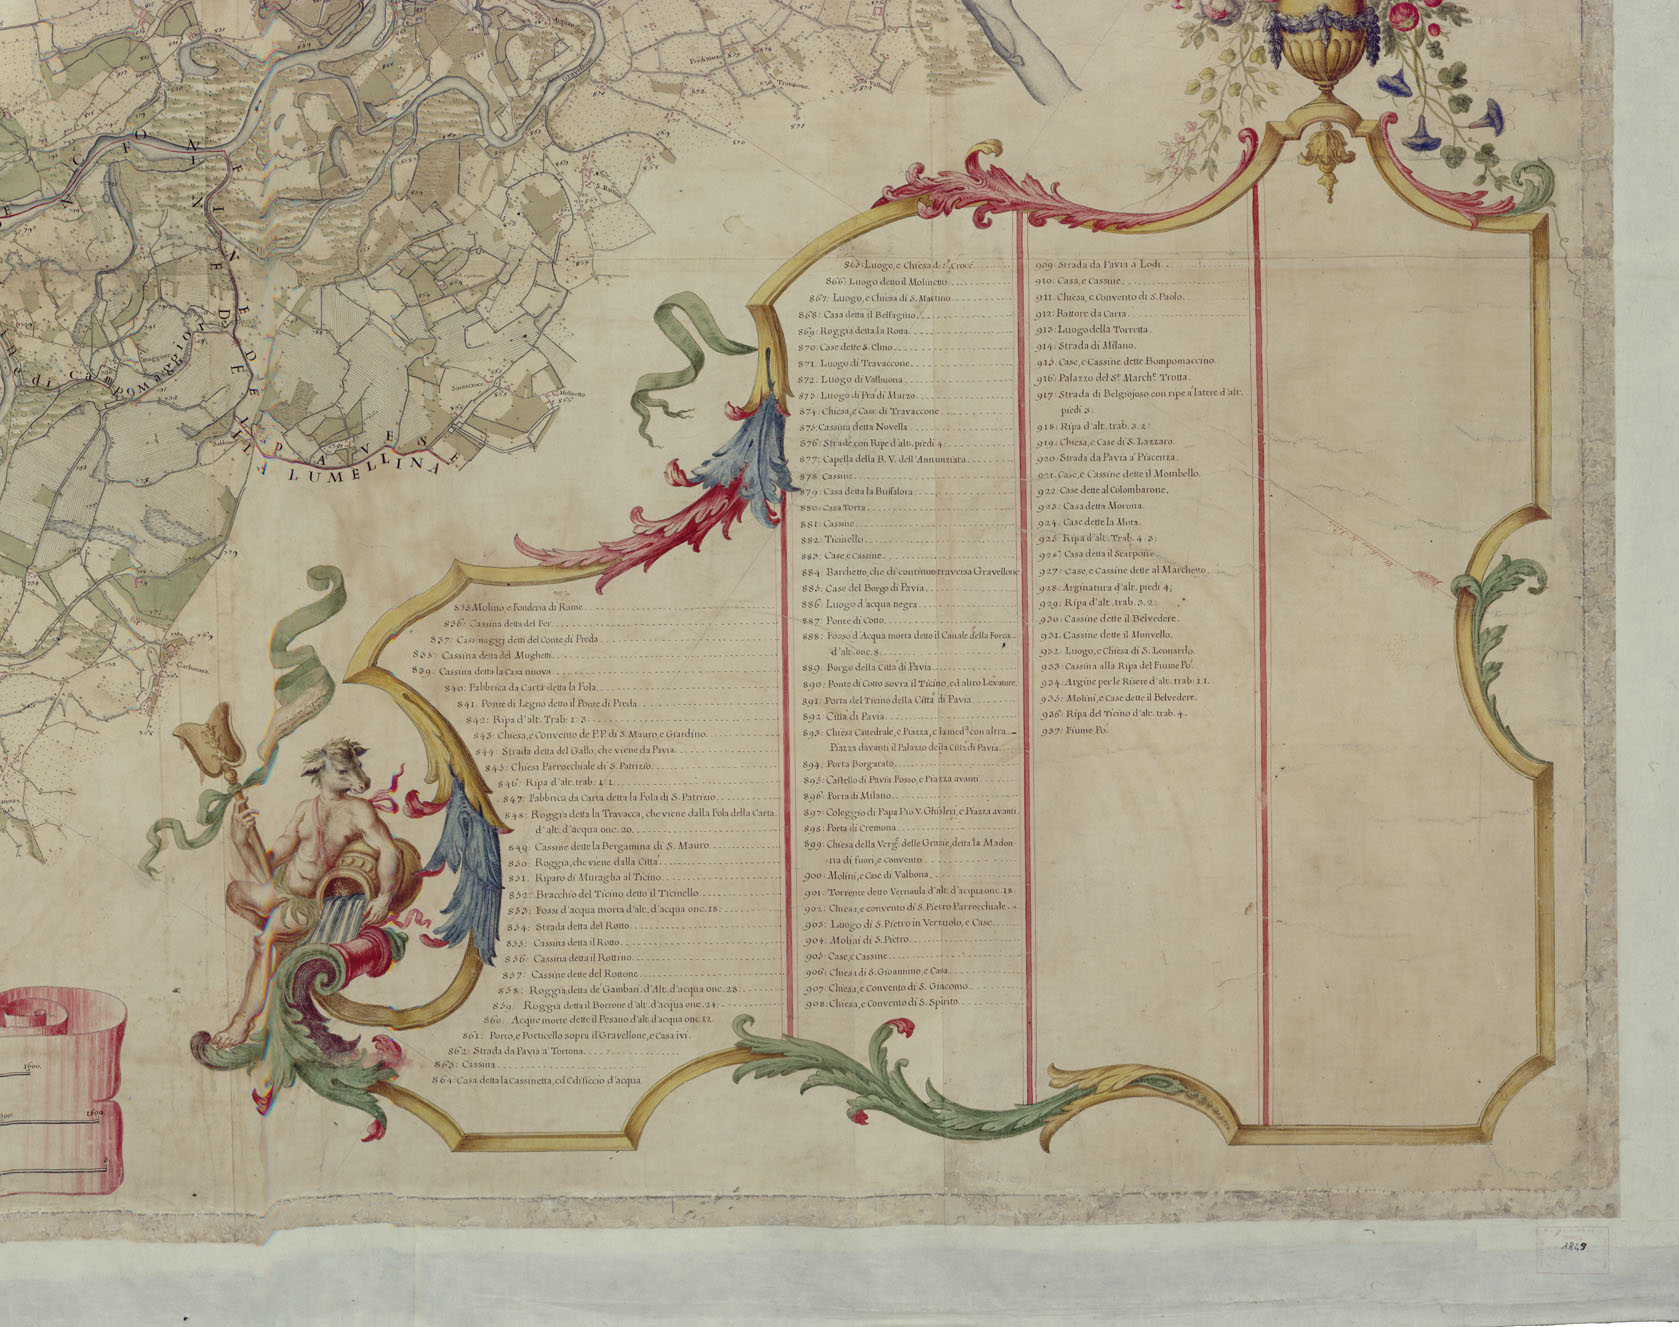 835. Molino, e Fonderia di Rame
836: Cassina detta del Fer
837: Cassinaggj detti del Conte di Preda
838: Cassina detta del Mughetti
839. Cassina detta la Casa nuova
840: Fabbrica da Carta detta la Fola
841. Ponte di Legno detto il Ponte di Preda
842: Ripa d'alt. Trab: 1. 3
843: Chiesa, e Convento de P.P. di S. Mauro, e Giardino
844: Strada detta del Gallo, che viene da Pavia
845: Chiesa Parrocchiale di S. Patrizio
846: Ripa d'alt. trab: 1: 1
847: Fabbrica da Carta detta la Fola di S. Patrizio
848: Roggia detta la Travacca, che viene dalla Fola della Carta
d'alt. d'acqua onc. 20
849: Cassine dette la Bergamina di S. Mauro
850: Roggia, che viene dalla Città
851. Riparo di Muraglia al Ticino
852: Bracchio del Ticino detto il Ticinello
853: Fossi d'acqua morta d'alt. d'acqua onc. 18:
854: Strada detta del Rotto
855: Cassina detta il Rotto
856: Cassina detta il Rottino
857: Cassine dette del Rottone
858: Roggia detta de' Gambari. d'Alt. d'acqua onc. 28:
859. Roggia detta il Borrone d'alt. d'acqua onc. 24:
860: Acque morte dette il Pesano d'alt. d'acqua onc. 12
861: Porto, e Porticello sopra il Gravellone, e Casa ivi
862: Strada da Pavia a' Tortona
863: Cassina
864: Casa detta la Cassinetta, ed Edificcio d'acqua
865: Luogo, e Chiesa di S. Croce
866: Luogo detto il Molinetto
867: Luogo, e Chiesa di S. Martino
868: Casa detta il Belfagino
869: Roggia detta la Rotta
870: Case dette S. Elmo
871. Luogo di Travaccone
872: Luogo di Valbuona
873: Luogo di Prà di Marzo
874: Chiesa, e Case di Travaccone
875: Cassina detta Novella
876: Strade con Ripe d'alt. piedi 4:
877: Capella della B. V. dell'Annunziata
878: Cassine
879: Casa detta la Buffalora
880: Casa Torta
881: Cassine
882: Ticinello
883: Case, e Cassine
884: Barchetto, che di continuo traversa Gravellone
885: Case del Borgo di Pavia
886: Luogo d'acqua negra
887: Ponte di Cotto
888: Fosso d'Acqua morta detto il Canale della Forca
d'alt. onc. 8:
889: Borgo della Città di Pavia
890: Ponte di Cotto sovra il Ticino, ed altro Levatore
891: Porta del Ticino della Città di Pavia
892: Città di Pavia
893: Chiesa Cattedrale, e Piazza, e la med.ª con altra
Piazza davanti il Palazzo della Città di Pavia
894: Porta Borgarato
895: Castello di Pavia Fosso, e Piazza avanti
896: Porta di Milano
897: Coleggio di Papa Pio V. Ghisleri, e Piazza avanti
898: Porta di Cremona
899: Chiesa della Verg.e delle Grazie, detta la Madon
na di fuori, e convento
900: Molini, e Case di Valbona
901: Torrente detto Vernaula d'alt. d'acqua onc. 18
902: Chiesa, e convento di S. Pietro Parrocchiale
903: Luogo di S. Pietro in Verzuolo, e Case
904: Molini di S. Pietro
905: Case, e Cassine
906: Chiesa di S. Gioannino, e Casa
907: Chiesa, e Convento di S. Giacomo
908: Chiesa, e Convento di S. Spirito
909: Strada da Pavia à Lodi
910: Casa, e Cassine
911: Chiesa, e Convento di S. Paolo
912: Battore da Carta
913: Luogo della Torretta
914: Strada di Milano
915: Case, e Cassine dette Bompomaccino
916: Palazzo del S.r March.e Trotta
917: Strada di Belgiojoso con ripe a' latere d'alt.
piedi 3:
918: Ripa d'alt. trab. 3. 2:
919: Chiesa, e Case di S. Lazzaro
920: Strada da Pavia a' Piacenza
921: Case, e Cassine dette il Mombello
922: Case dette al Colombarone
923: Casa detta Morona
924: Case dette la Mota
925: Ripa d'alt. Trab. 4. 3:
926: Casa detta il Scarpone
927: Case, e Cassine dette al Marchetto
928: Arginatura d'alt. piedi 4:
929: Ripa d'alt. trab. 3. 2:
930: Cassine dette il Belvedere
931: Cassine dette il Monvello
932: Luogo, e Chiesa di S. Leonardo
933: Cassina alla Ripa del Fiume Pò
934: Argine per le Risere d'alt. trab: 1. 1.
935: Molini, e Case dette il Belvedere
936: Ripa del Ticino d'alt. trab. 4
937: Fiume Pò
Gravellone
Travaccone
S. Martino
Campomaggiore
PAVESE
LUMELLINA
Carbonara
1600
1849